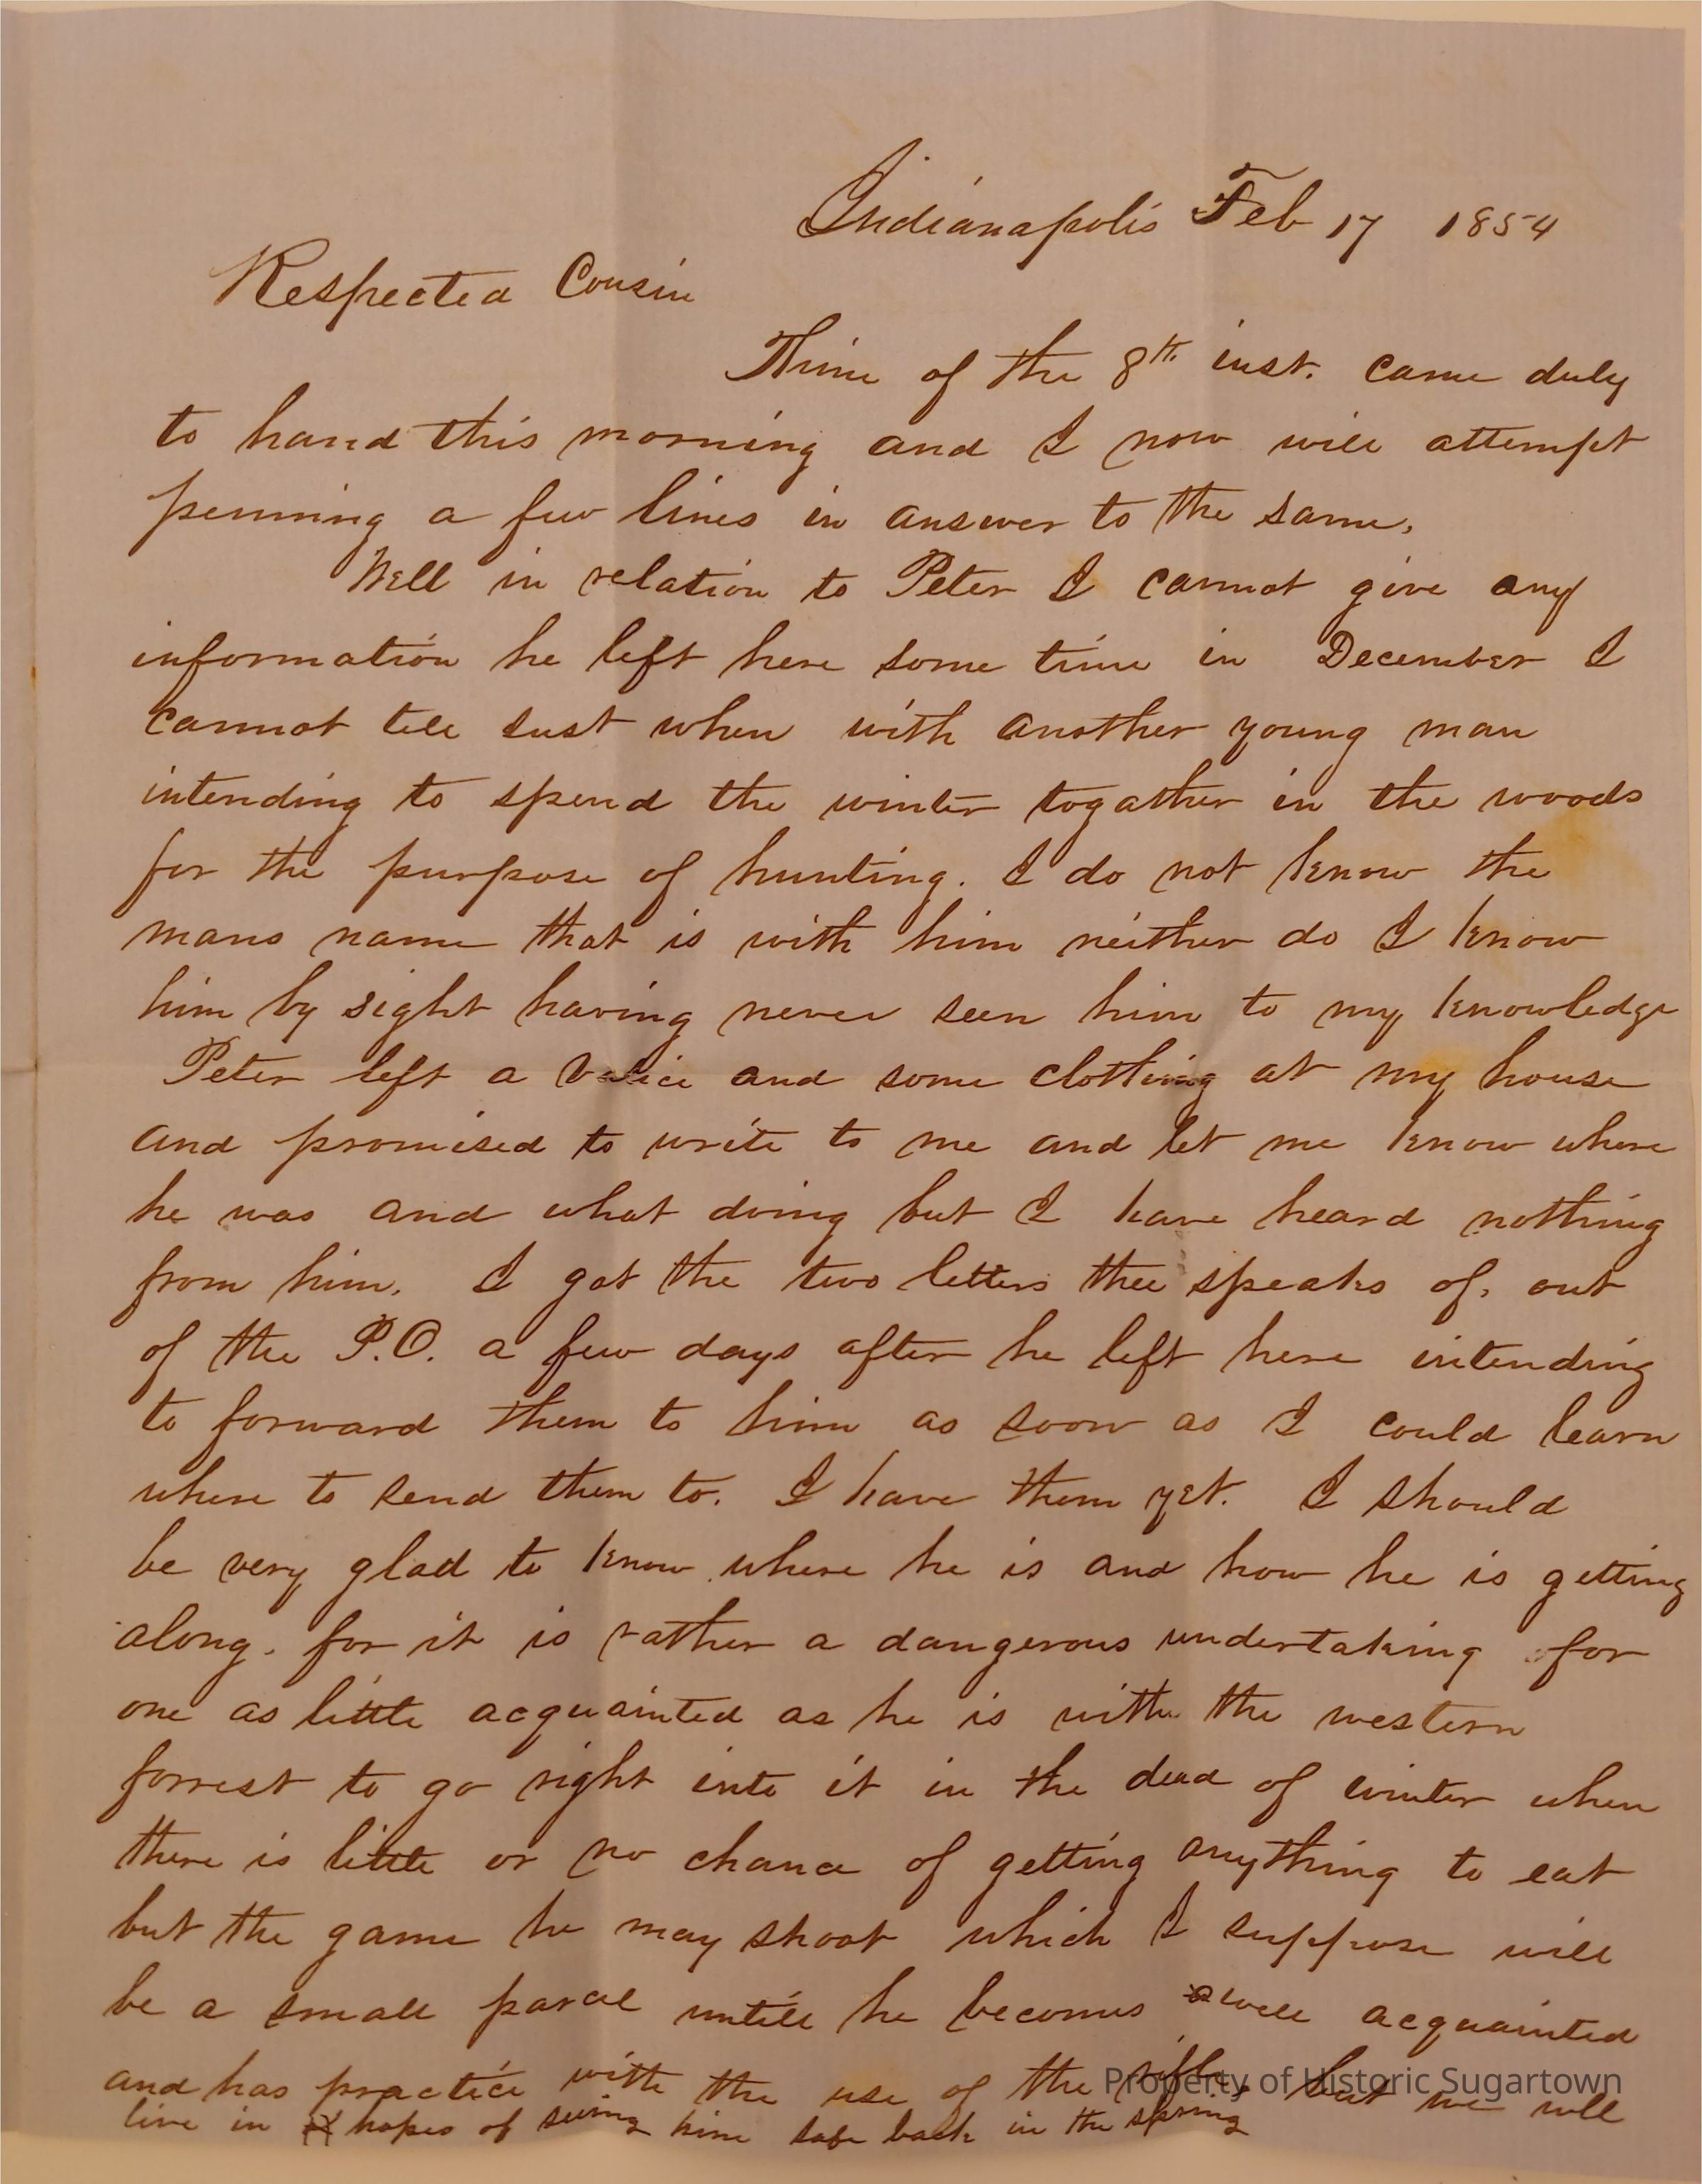 Indianapolis Feb 17 1854
Respected Cousin
Thine of the 8th inst. came duly
to hand this morning and I now will attempt
penning a few lines in answer to the same,
Well in relation to Peter I cannot give any
information he left here some time in December I
cannot tell just when with another young man
intending to spend the winter togather in the woods
for the purpose of hunting. I do not know the
mans name that is with him neither do I know
him by sight having never seen him to my knowledge
Peter left a valice and some clothing at my house
and promised to write to me and let me know where
he was and what doing but I have heard nothing
from him. I got the two letters thee speaks of, out
of the P.O. a few days after he left here intending
to forward them to him as soon as I could learn
where to send them to. I have them yet. I should
be very glad to know where he is and how he is getting
along. for it is rather a dangerous undertaking for
one as little acquainted as he is with the western
forrest to go right into it in the dead of winter when
there is little or no chance of getting anything to eat
but the game he may shoot which I suppose will
be a small parcel untill he becomes well acquainted
and has practice with the use of the rifle, but we will
live in hopes of seeing him safe back in the spring
Property of Historic Sugartown